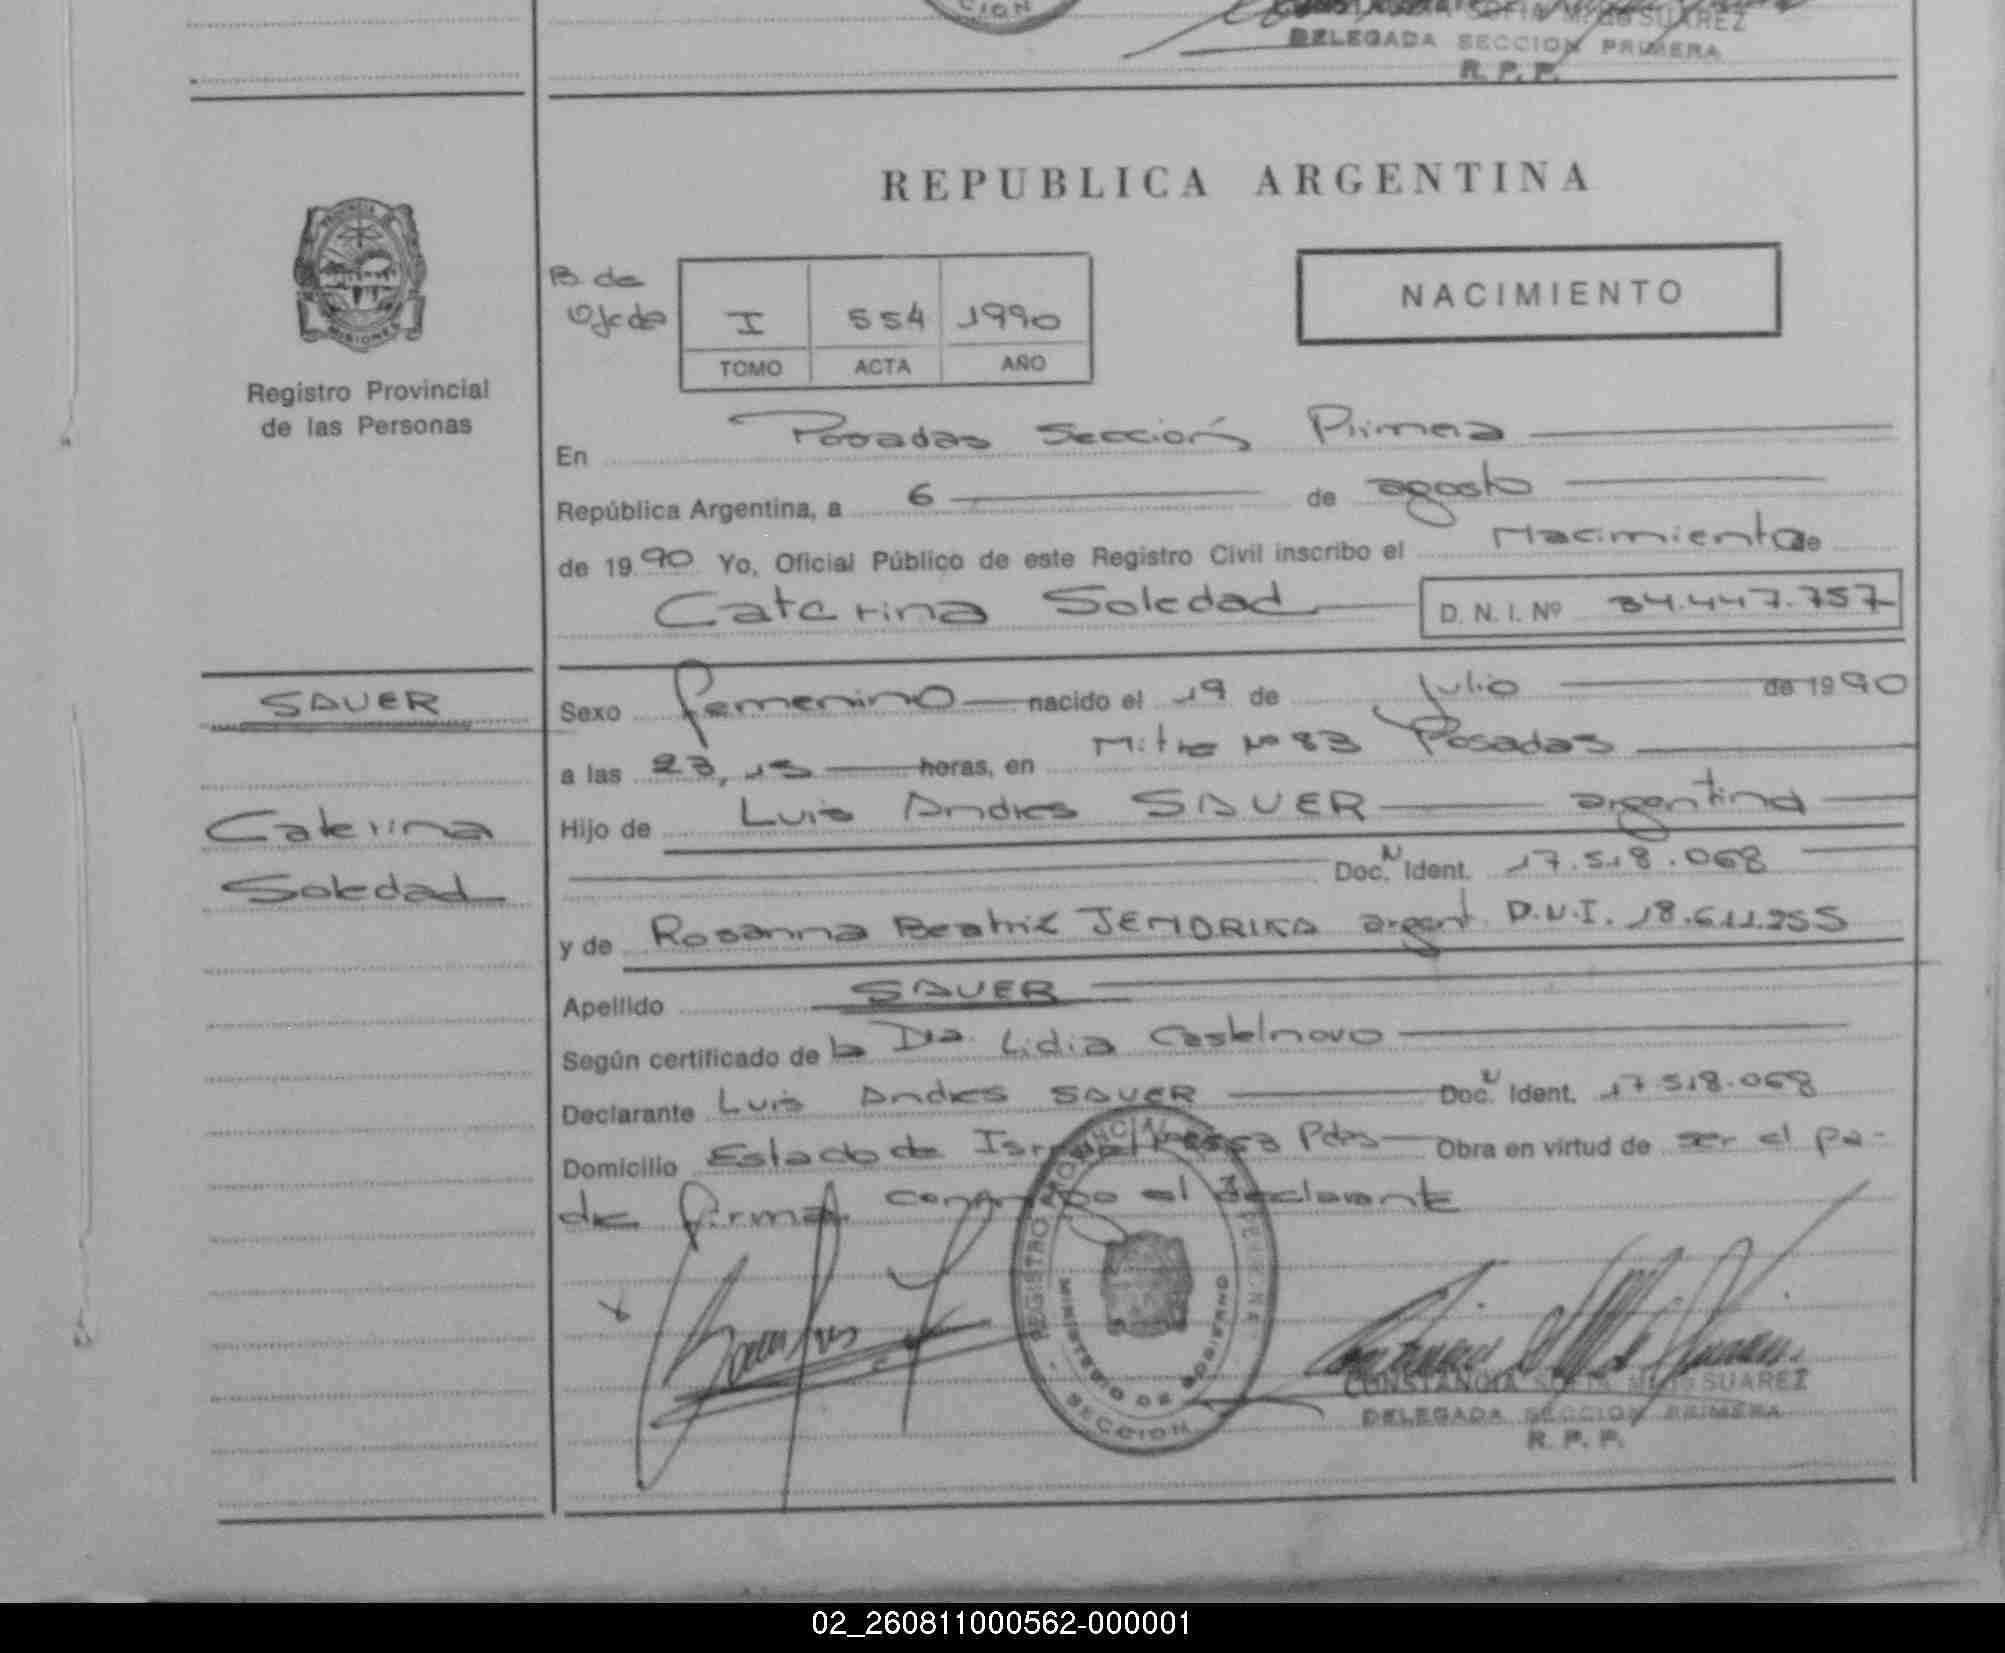 DELEGADA SECCION PRIMERA
R. P. P.
REPUBLICA ARGENTINA
NACIMIENTO
B. de
I 554 1990
TOMO ACTA AÑO
Registro Provincial
de las Personas
En Posadas Sección Primera
República Argentina, a 6 de agosto
de 1990 Yo, Oficial Público de este Registro Civil inscribo el Nacimiento de
Caterina Soledad D. N. I. Nº 34.447.757
SAUER
Caterina
Soledad
Sexo femenino nacido el 19 de Julio de 1990
a las 23,15 horas, en Mitre Nº 83 Posadas
Hijo de Luis Andres SAUER argentina
Doc. N Ident. 17.518.068
y de Rosanna Beatriz argent. D.N.I. 18.611.255
Apellido SAUER
Según certificado de la Dra. Lidia Castelnovo
Declarante Luis Andres SAUER Doc. N Ident. 17.518.068
Domicilio Estado de Israel Pdas Obra en virtud de ser el pa-
dre firma conmigo el declarante
REGISTRO PROVINCIAL
MINISTERIO DE GOBIERNO
SECCION
CONSTANCIA SOFIA SUAREZ
DELEGADA SECCION PRIMERA
R. P. P.
02_260811000562-000001